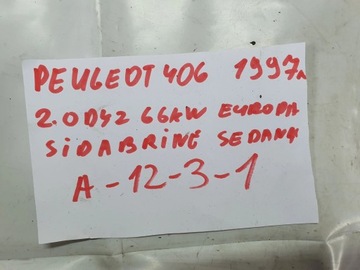 PEUGEOT 406 1997m
2.0DYZ 66KW EUROPA
SIDABRINĖ SEDANAS
A-12-3-1